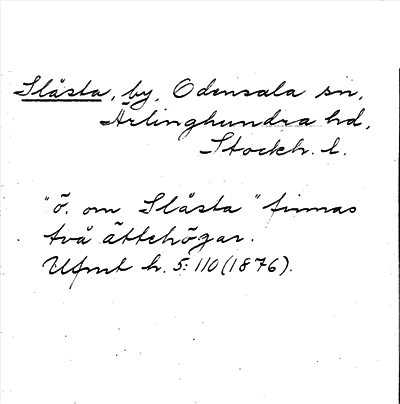 Slåsta, by, Odensala sn,
Ärlinghundra hd,
Stockh. l.
"ö. om Slåsta" finnas
två ättehögar.
Ufmt h. 5:110 (1876).